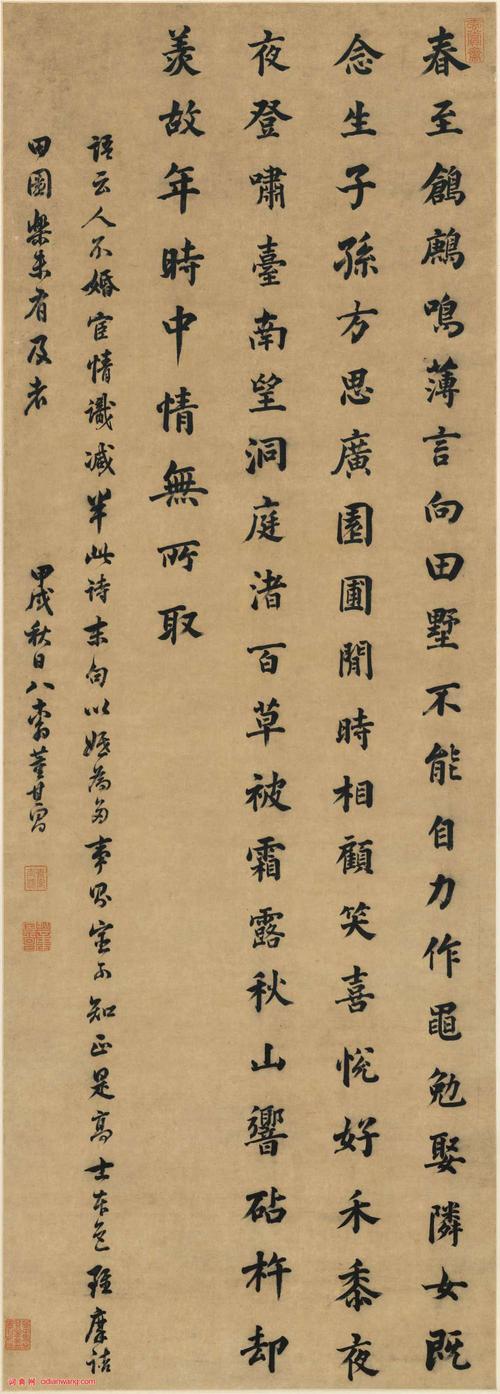 春至鶬鶊鳴薄言向田墅不能自力作黽勉娶隣女既
念生子孫方思廣園圃閒時相顧笑喜悅好禾黍夜
夜登嘯臺南望洞庭渚百草被霜露秋山響砧杵却
羨故年時中情無所取
語云人不婚宦情識減半此詩末句以婚為多事實不知正是高士本色雖摩詰
田園樂未有及者
甲戌秋日八十翁董其昌
词典网：cidianwang.com